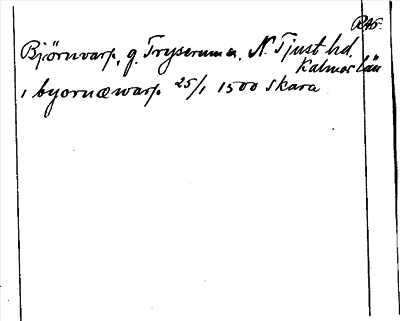 RAp.
Björnvarp, g. Tryserum sn, N. Tjust hd.
Kalmar län
i byornæwarp 25/1 1500 Skara